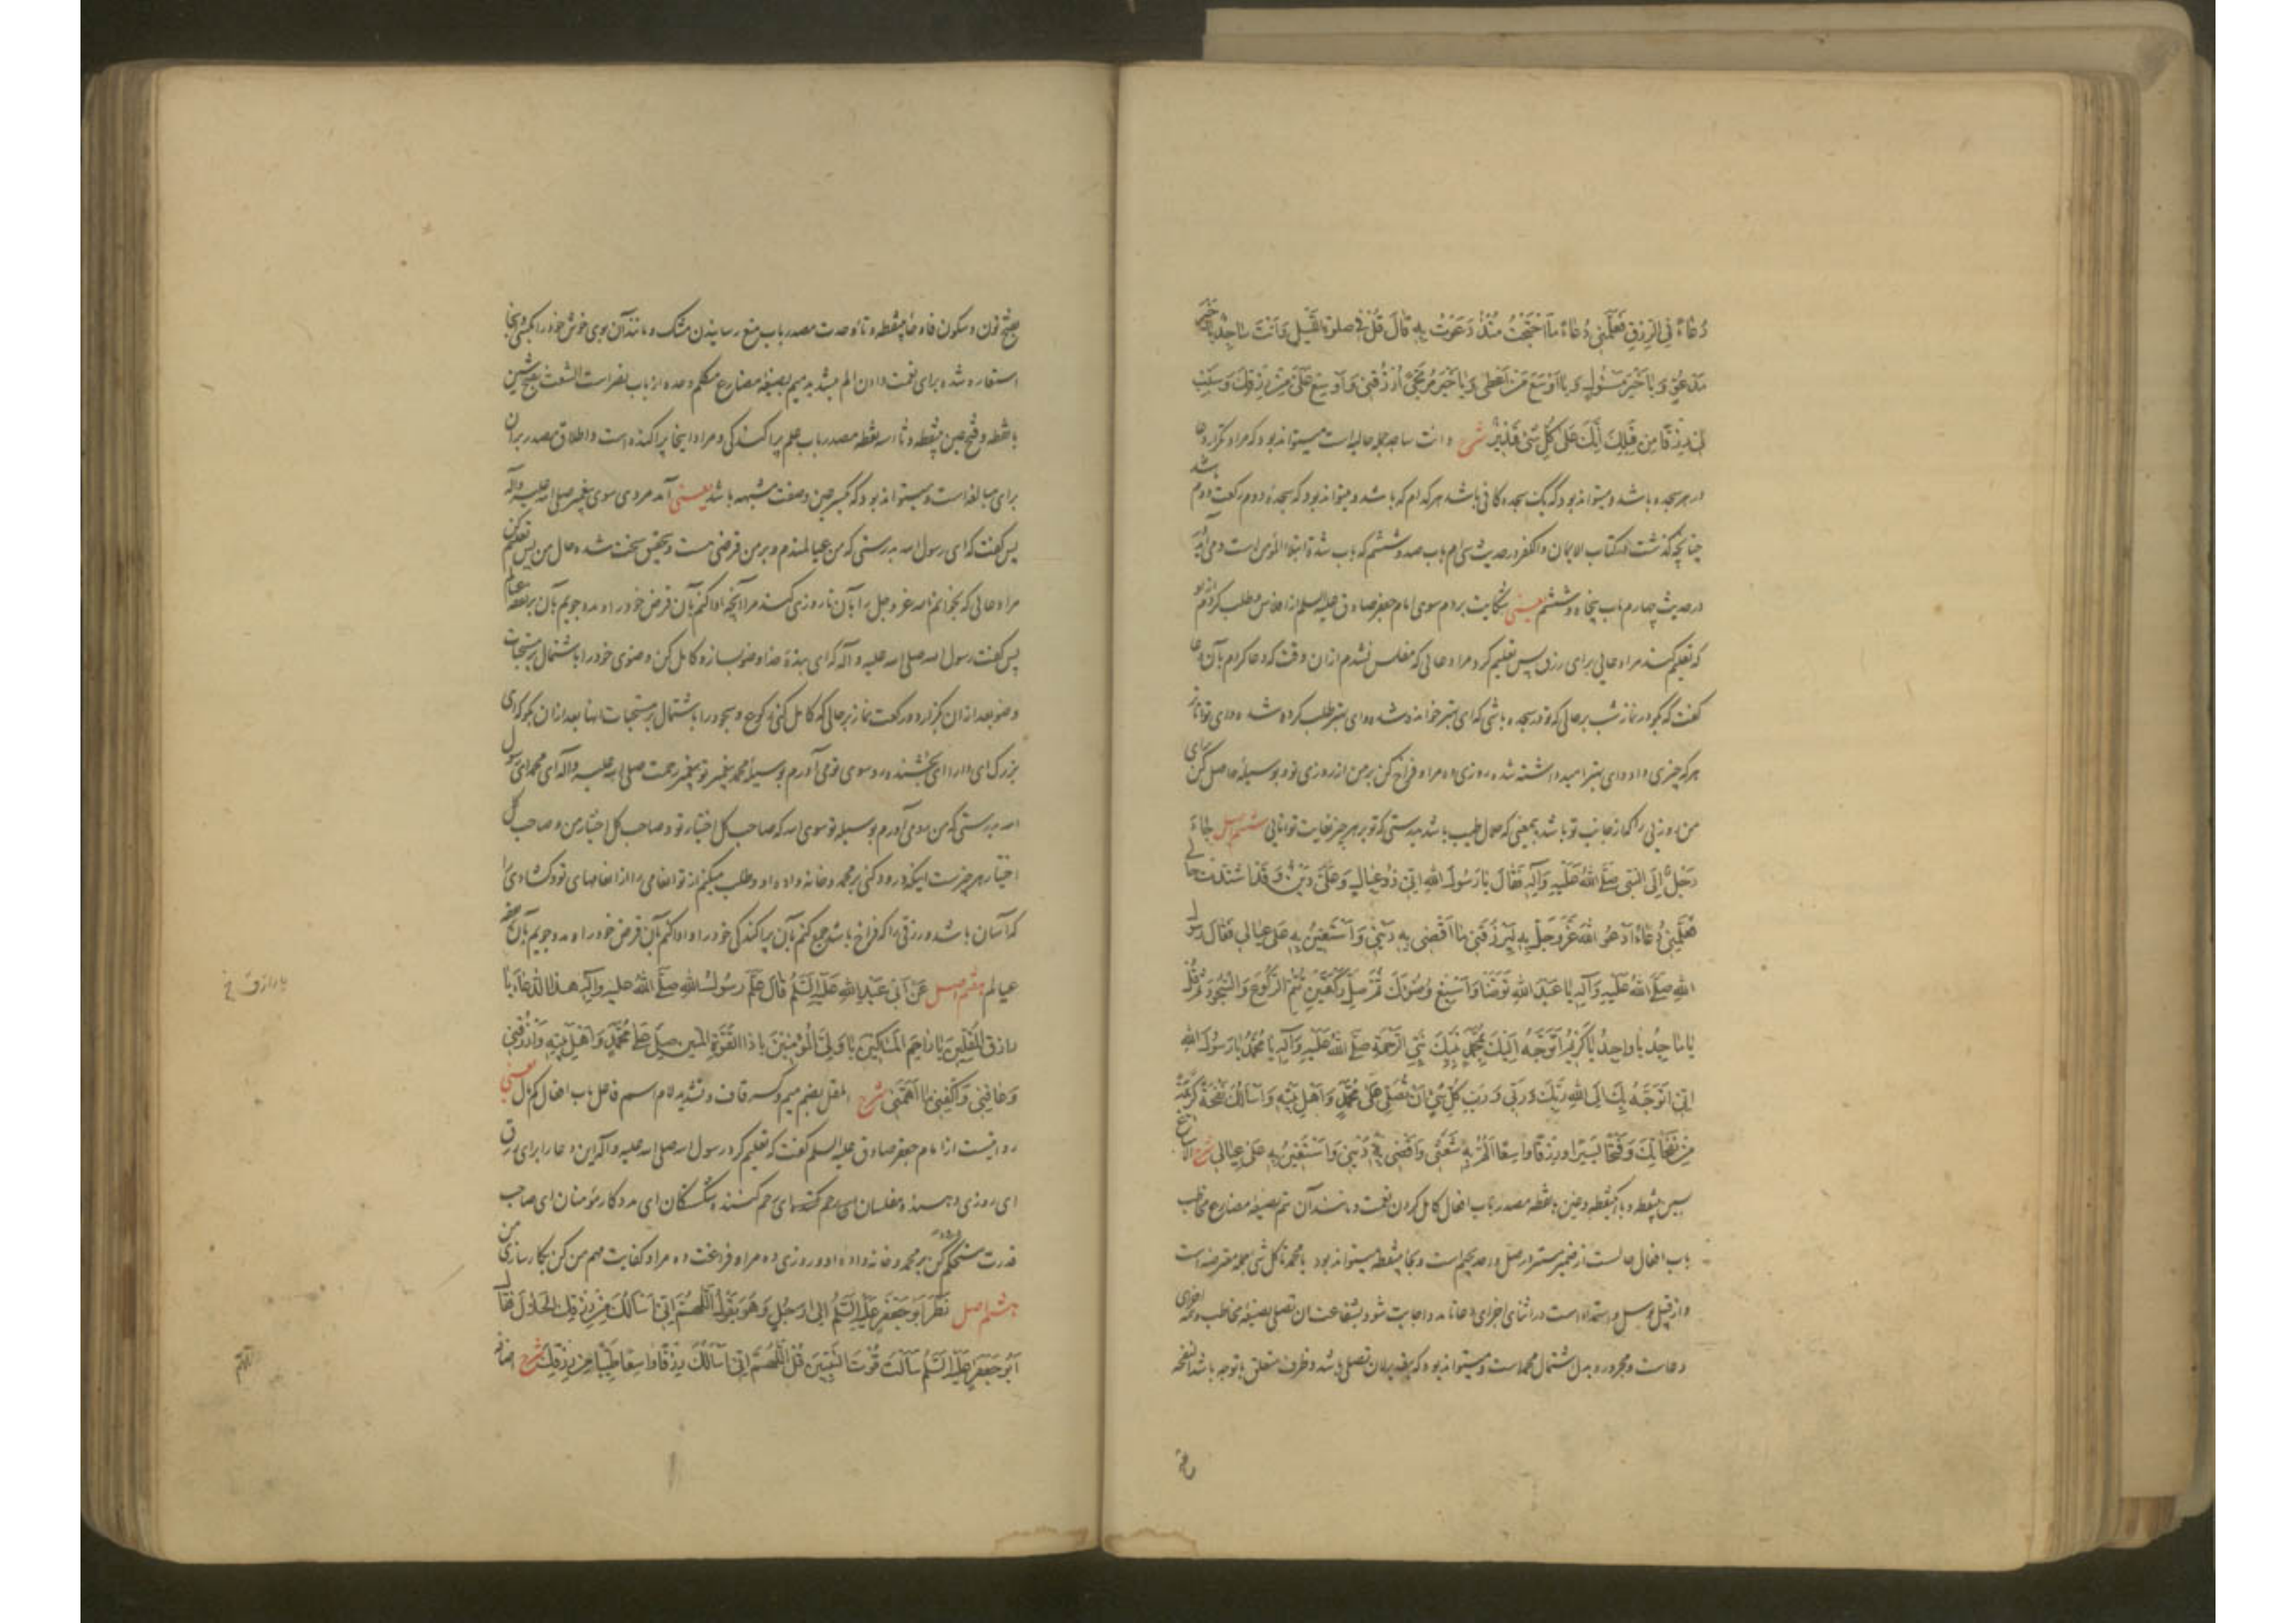 دُعَاءً فِي الرِّزْقِ فَعَلَّمَنِي دُعَاءً مَا احْتَجْتُ مُنْذُ دَعَوْتُ بِهِ قَالَ قُلْ فِي صلوة اللَّيْلِ وَأَنْتَ سَاجِدٌ يَا خَيْرَ
مَدْعُوٍّ وَيَا خَيْرَ مَسْئُولٍ وَيَا أَوْسَعَ مَنْ أَعْطَى وَيَا خَيْرَ مُرْتَجًى ارْزُقْنِي وَأَوْسِعْ عَلَيَّ مِنْ رِزْقِكَ وَسَبِّبْ
لِي رِزْقًا مِنْ قِبَلِكَ إِنَّكَ عَلَى كُلِّ شَيْءٍ قَدِيرٌ شرح و انت ساجد جمله حالیه است میتواند بود که مراد تکرار دعا
در هر سجده باشد و میتواند بود که یک سجده کافی باشد هر کدام که باشد و میتواند بود که سجده دوم رکعت دوم باشد
چنانچه گذشت در کتاب الایمان و الکفر در حدیث سی ام باب صد و ششم که باب شدة ابتلاء المؤمن است و می آید
در حدیث چهارم باب پنجاه و ششم یعنی شکایت بردم سوی امام جعفر صادق علیه السلم از افلاس و طلب کردم ازو
که تعلیم کند مرا دعائی برای رزق پس تعلیم کرد مرا دعائی که مفلس نشدم از ان وقت که دعا کردم بآن دعا
گفت که بگو در نماز شب بر حالی که تو در سجده باشی که ای بهتر خوانده شده و ای بهتر طلب کرده شده و ای تواناتر
هر که چیزی داد و ای بهتر امید داشته شده روزی ده مرا و فراخ کن بر من از روزی خود و بوسیله حاصل کن برای
من روزیی را که از جانب تو باشد بمعنی که حلال طیب باشد بدرستی که تو بر هر چیز بغایت توانایی ششم اصل جَاءَ
رَجُلٌ إِلَى النَّبِيِّ صَلَّى اللَّهُ عَلَيْهِ وَآلِهِ فَقَالَ يَا رَسُولَ اللَّهِ إِنِّي ذُو عِيَالٍ وَعَلَيَّ دَيْنٌ وَقَدِ اشْتَدَّتْ حَالِي
فَعَلِّمْنِي دُعَاءً أَدْعُو اللَّهَ عَزَّ وَجَلَّ بِهِ لِيَرْزُقَنِي مَا أَقْضِي بِهِ دَيْنِي وَأَسْتَعِينُ بِهِ عَلَى عِيَالِي فَقَالَ رَسُولُ
اللَّهِ صَلَّى اللَّهُ عَلَيْهِ وَآلِهِ يَا عَبْدَ اللَّهِ تَوَضَّأْ وَأَسْبِغْ وُضُوءَكَ ثُمَّ صَلِّ رَكْعَتَيْنِ تُتِمُّ الرُّكُوعَ وَالسُّجُودَ ثُمَّ قُلْ
يَا مَاجِدُ يَا وَاحِدُ يَا كَرِيمُ أَتَوَجَّهُ إِلَيْكَ بِمُحَمَّدٍ نَبِيِّكَ نَبِيِّ الرَّحْمَةِ صَلَّى اللَّهُ عَلَيْهِ وَآلِهِ يَا مُحَمَّدُ يَا رَسُولَ اللَّهِ
إِنِّي أَتَوَجَّهُ بِكَ إِلَى اللَّهِ رَبِّكَ وَرَبِّي وَرَبِّ كُلِّ شَيْءٍ أَنْ تُصَلِّيَ عَلَى مُحَمَّدٍ وَأَهْلِ بَيْتِهِ وَأَسْأَلُكَ نَفْحَةً كَرِيمَةً
مِنْ نَفَحَاتِكَ وَفَتْحًا يَسِيرًا وَرِزْقًا وَاسِعًا أَلُمُّ بِهِ شَعْثِي وَأَقْضِي بِهِ دَيْنِي وَأَسْتَعِينُ بِهِ عَلَى عِيَالِي شرح الاسباغ
بسین بینقطه و باء یکنقطه و غین بانقطه مصدر باب افعال کامل کردن نعمت و مانند آن تتم بصیغه مضارع مخاطب
باب افعال حالست از ضمیر مستتر در صل واحد بجیم است و بحاء بینقطه میتواند بود یا محمد تا کل شی جمله معترضه است
و از قبیل توسل و استمداد است در اثنای اجزای دعا تا مدد اجابت شود بشفاعت ان تصلی بصیغه مخاطب و تتمه اجزای
دعاست و مجرور و بدل اشتمال محمد است و میتواند بود که بتقدیر لان تصلی باشد و ظرف متعلق باتوجه باشد النفحة
بفتح
بفتح نون و سکون فاء و حاء بینقطه و تاء وحدت مصدر باب منع رسانیدن مشک و مانند آن بوی خوش خود را بکسی و اینجا
استعاره شده برای نعمت دادن الم بتشدید میم بصیغه مضارع متکلم وحده از باب نصر است الشعث بفتح شین
بانقطه و فتح عین بینقطه و ثاء سه نقطه مصدر باب علم پراکندگی و مراد اینجا پراکنده است و اطلاق مصدر بران
برای مبالغه است و میتواند بود که بکسر عین و صفت مشبهه باشد یعنی آمد مردی سوی پیغمبر صلی الله علیه و آله
پس گفت که ای رسول الله بدرستی که من عیالمندم و بر من قرضی هست و بتحقیق سخت شده حال من پس تعلیم کن
مرا دعائی که بخوانم الله عز و جل را بآن تا روزی کند مرا آنچه ادا کنم بآن قرض خود را و مدد جویم بآن بر نفقه عیالم
پس گفت رسول الله صلی الله علیه و آله که ای بنده خدا وضو بساز و کامل کن وضوی خود را باشتمال بر مستحبات
وضو بعد از ان بگزار دو رکعت نماز بر حالی که کامل کنی رکوع و سجود را باشتمال بر مستحبات اینها بعد از ان بگو که ای
بزرگ ای دارا ای بخشنده رو سوی تو می آورم بوسیله محمد پیغمبر تو پیغمبر رحمت صلی الله علیه و آله ای محمد ای رسول
الله بدرستی که من رو می آورم بوسیله تو سوی الله که صاحب کل اختیار تو و صاحب کل اختیار من و صاحب کل
اختیار هر چیزست اینکه درود کنی بر محمد و خانه واده او و طلب میکنم از تو انعامی را از انعامهای تو و گشادیی را
که آسان باشد و رزقی را که فراخ باشد جمع کنم بآن پراکندگی خود را و ادا کنم بآن قرض خود را و مدد جویم بآن بر نفقه
عیالم هفتم اصل عَنْ أَبِي عَبْدِ اللَّهِ عَلَيْهِ السَّلَمُ قَالَ عَلَّمَ رَسُولُ اللَّهِ صَلَّى اللَّهُ عَلَيْهِ وَآلِهِ هَذَا الدُّعَاءَ يَا
رَازِقَ الْمُقِلِّينَ يَا رَاحِمَ الْمَسَاكِينِ يَا وَلِيَّ الْمُؤْمِنِينَ يَا ذَا الْقُوَّةِ الْمَتِينِ صَلِّ عَلَى مُحَمَّدٍ وَأَهْلِ بَيْتِهِ وَارْزُقْنِي
يا رازق خ
وَعَافِنِي وَاكْفِنِي مَا أَهَمَّنِي شرح المقل بضم میم و کسر قاف و تشدید لام اسم فاعل باب افعال کم مال یعنی
روایتست از امام جعفر صادق علیه السلم گفت که تعلیم کرد رسول الله صلی الله علیه و آله این دعا را برای رزق
ای روزی دهنده مفلسان ای رحم کننده شکستگان ای مددکار مؤمنان ای صاحب
قدرت مستحکم درود کن بر محمد و خانه واده او و روزی ده مرا و فراغت ده مرا و کفایت مهم من کن بکارسازی من
هشتم اصل نَظَرَ أَبُو جَعْفَرٍ عَلَيْهِ السَّلَمُ إِلَى رَجُلٍ وَهُوَ يَقُولُ اللَّهُمَّ إِنِّي أَسْأَلُكَ مِنْ رِزْقِكَ الْحَلَالِ فَقَالَ
أَبُو جَعْفَرٍ عَلَيْهِ السَّلَمُ سَأَلْتَ قُوتَ النَّبِيِّينَ قُلِ اللَّهُمَّ إِنِّي أَسْأَلُكَ رِزْقًا وَاسِعًا طَيِّبًا مِنْ رِزْقِكَ شرح اضافه